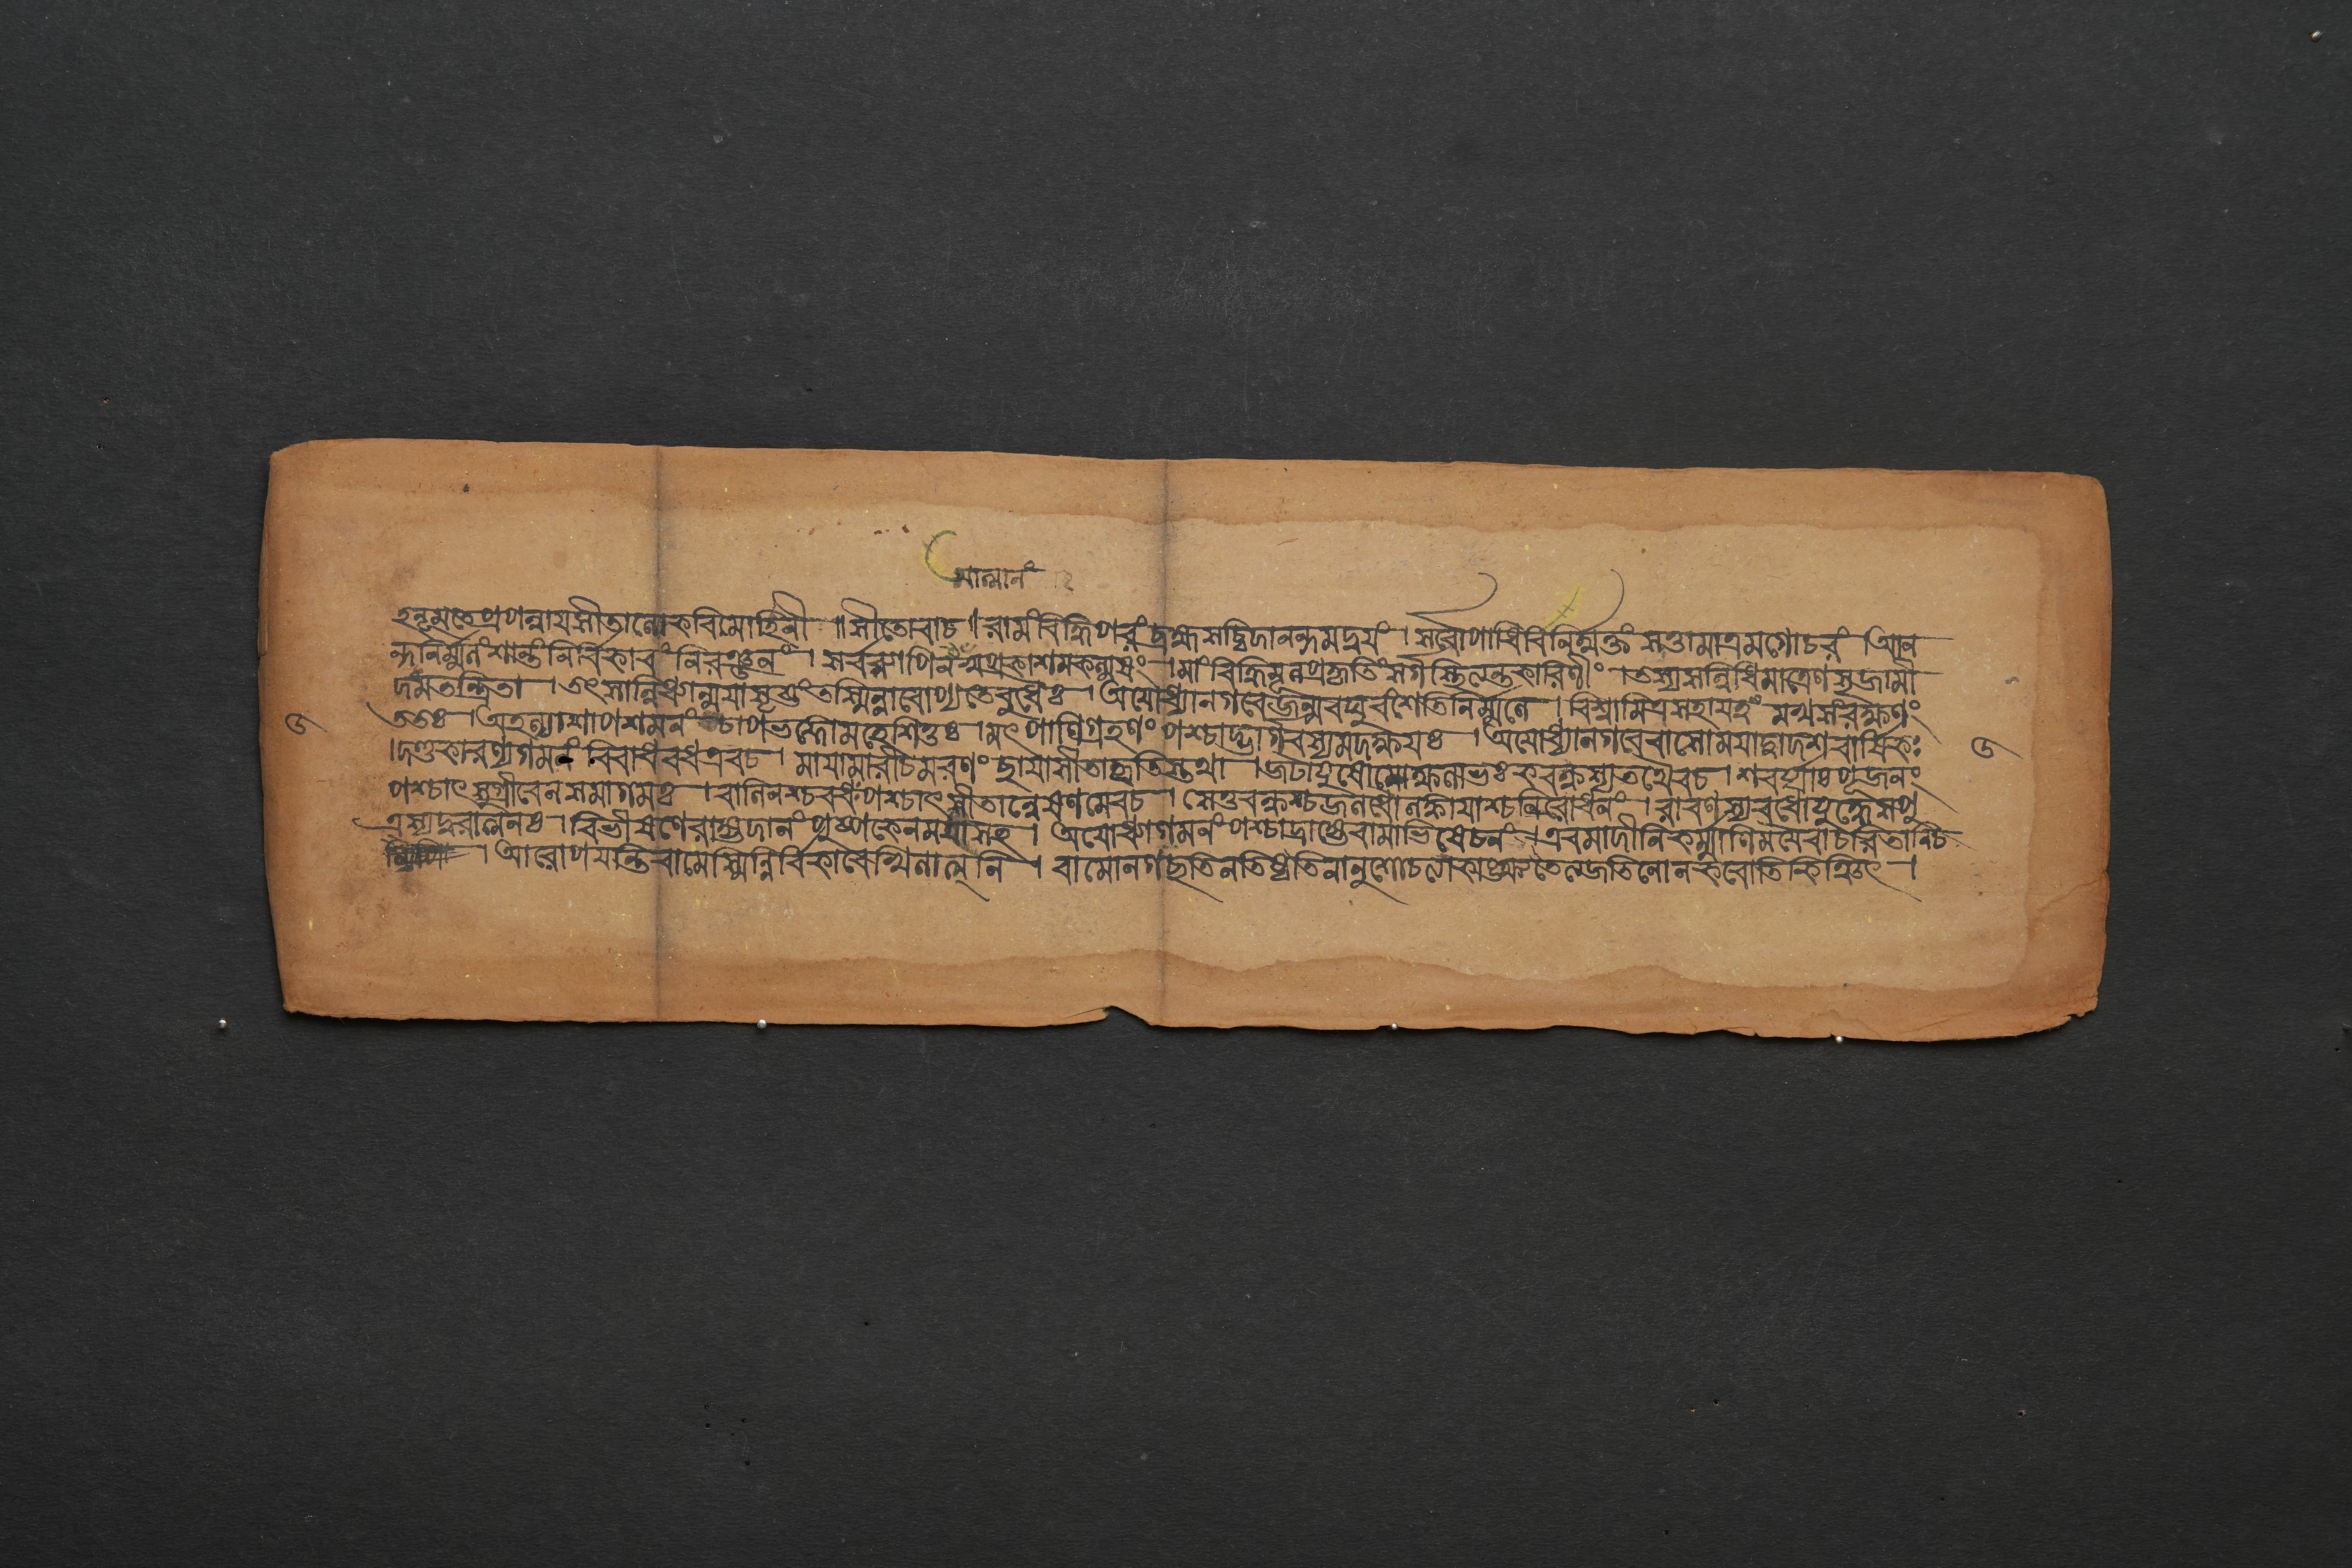 আত্মানং
হনূমতেপ্রপন্নায়সীতালোকবিমোহিনী ॥ সীতোবাচ ॥ রামংবিদ্ধিপরংব্রহ্মসচ্চিদানন্দমদ্বয়ং । সর্বোপাধিবিনির্ম্মুক্তং সত্তামাত্রমগোচরং আন
ন্দনির্ম্মলংশান্তংনির্বিকারং নিরঞ্জনং । সর্বব্যাপিনং স্বপ্রকাশমকল্মষং । মাংবিদ্ধিমূলপ্রকৃতিংসর্গস্থিত্যন্তকারিণীং । তস্যসন্নিধিমাত্রেণসৃজামী
দমতন্দ্রিতা । তৎসান্নিধ্যান্ময়াসৃষ্টংতস্মিন্নারোপ্যতেবুধৈঃ । অযোধ্যানগরেজন্মরঘুবংশেতিনির্ম্মলে । বিশ্বামিত্রসহায়ত্বং মখসংরক্ষণং
ততঃ । অহল্যাশাপশমনং চাপভঙ্গোমহেশিতুঃ । মৎপাণিগ্রহণং পশ্চাদ্ভার্গবস্যমদক্ষয়ঃ । অযোধ্যানগরেবাসোময়াদ্বাদশবার্ষিকঃ
৬ ৬
। দণ্ডকারণ্যগমনং বিরাধবধএবচ । মায়ামারীচমরণং ছায়াসীতাহৃতিস্তথা । জটায়ুষোমোক্ষলাভঃ কবন্ধস্যতথৈবচ । শবর্য্যাঃপূজনং
পশ্চাৎসুগ্রীবেনসমাগমঃ । বালিনশ্চবধঃপশ্চাৎ সীতান্বেষণমেবচ । সেতুবন্ধশ্চজলধৌলঙ্কায়াশ্চনিরোধনং । রাবণস্যবধোযুদ্ধেসপু
ত্রস্যদুরাত্মনঃ । বিভীষণেরাজ্যদানং পুষ্পকেনময়াসহ । অযোধ্যাগমনংপশ্চাদ্রাজ্যেরামাভিষেচনং । এবমাদীনিকর্ম্মাণিময়ৈবাচরিতানিচ
। আরোপয়ন্তিরামেস্মিন্নির্বিকারেখিলাত্মনি । রামোনগছতিনতিষ্ঠতিনানুশোচত্যাকাঙ্ক্ষতেত্যজতিনোনকরোতিকিঞ্চিৎ ।